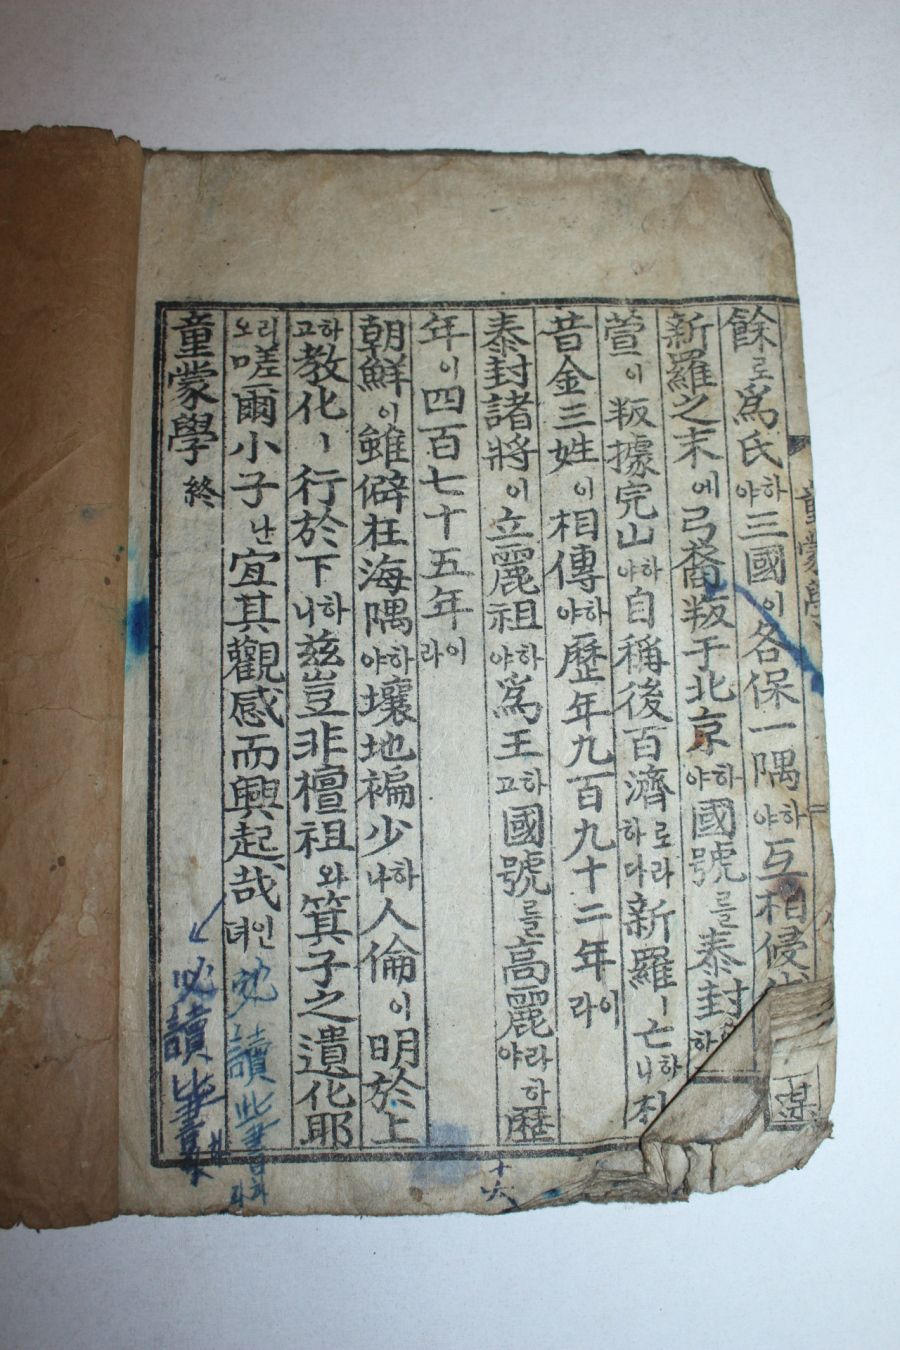 童蒙學
餘로爲氏하야三國이各保一隅하야互相侵
新羅之末에弓裔叛于北京하야國號를泰封하
萱이叛據完山하야自稱後百濟로라하다新羅ㅣ亡하니朴
昔金三姓이相傳하야歷年九百九十二年이라
泰封諸將이立麗祖하야爲王하고國號를高麗라하야歷
年이四百七十五年이라
朝鮮이雖僻在海隅하야壤地褊少하나人倫이明於上
하고教化ㅣ行於下하니玆豈非檀祖와箕子之遺化耶
리오嗟爾小子난宜其觀感而興起哉인뎌
童蒙學終
十六
必讀此書
必讀此書